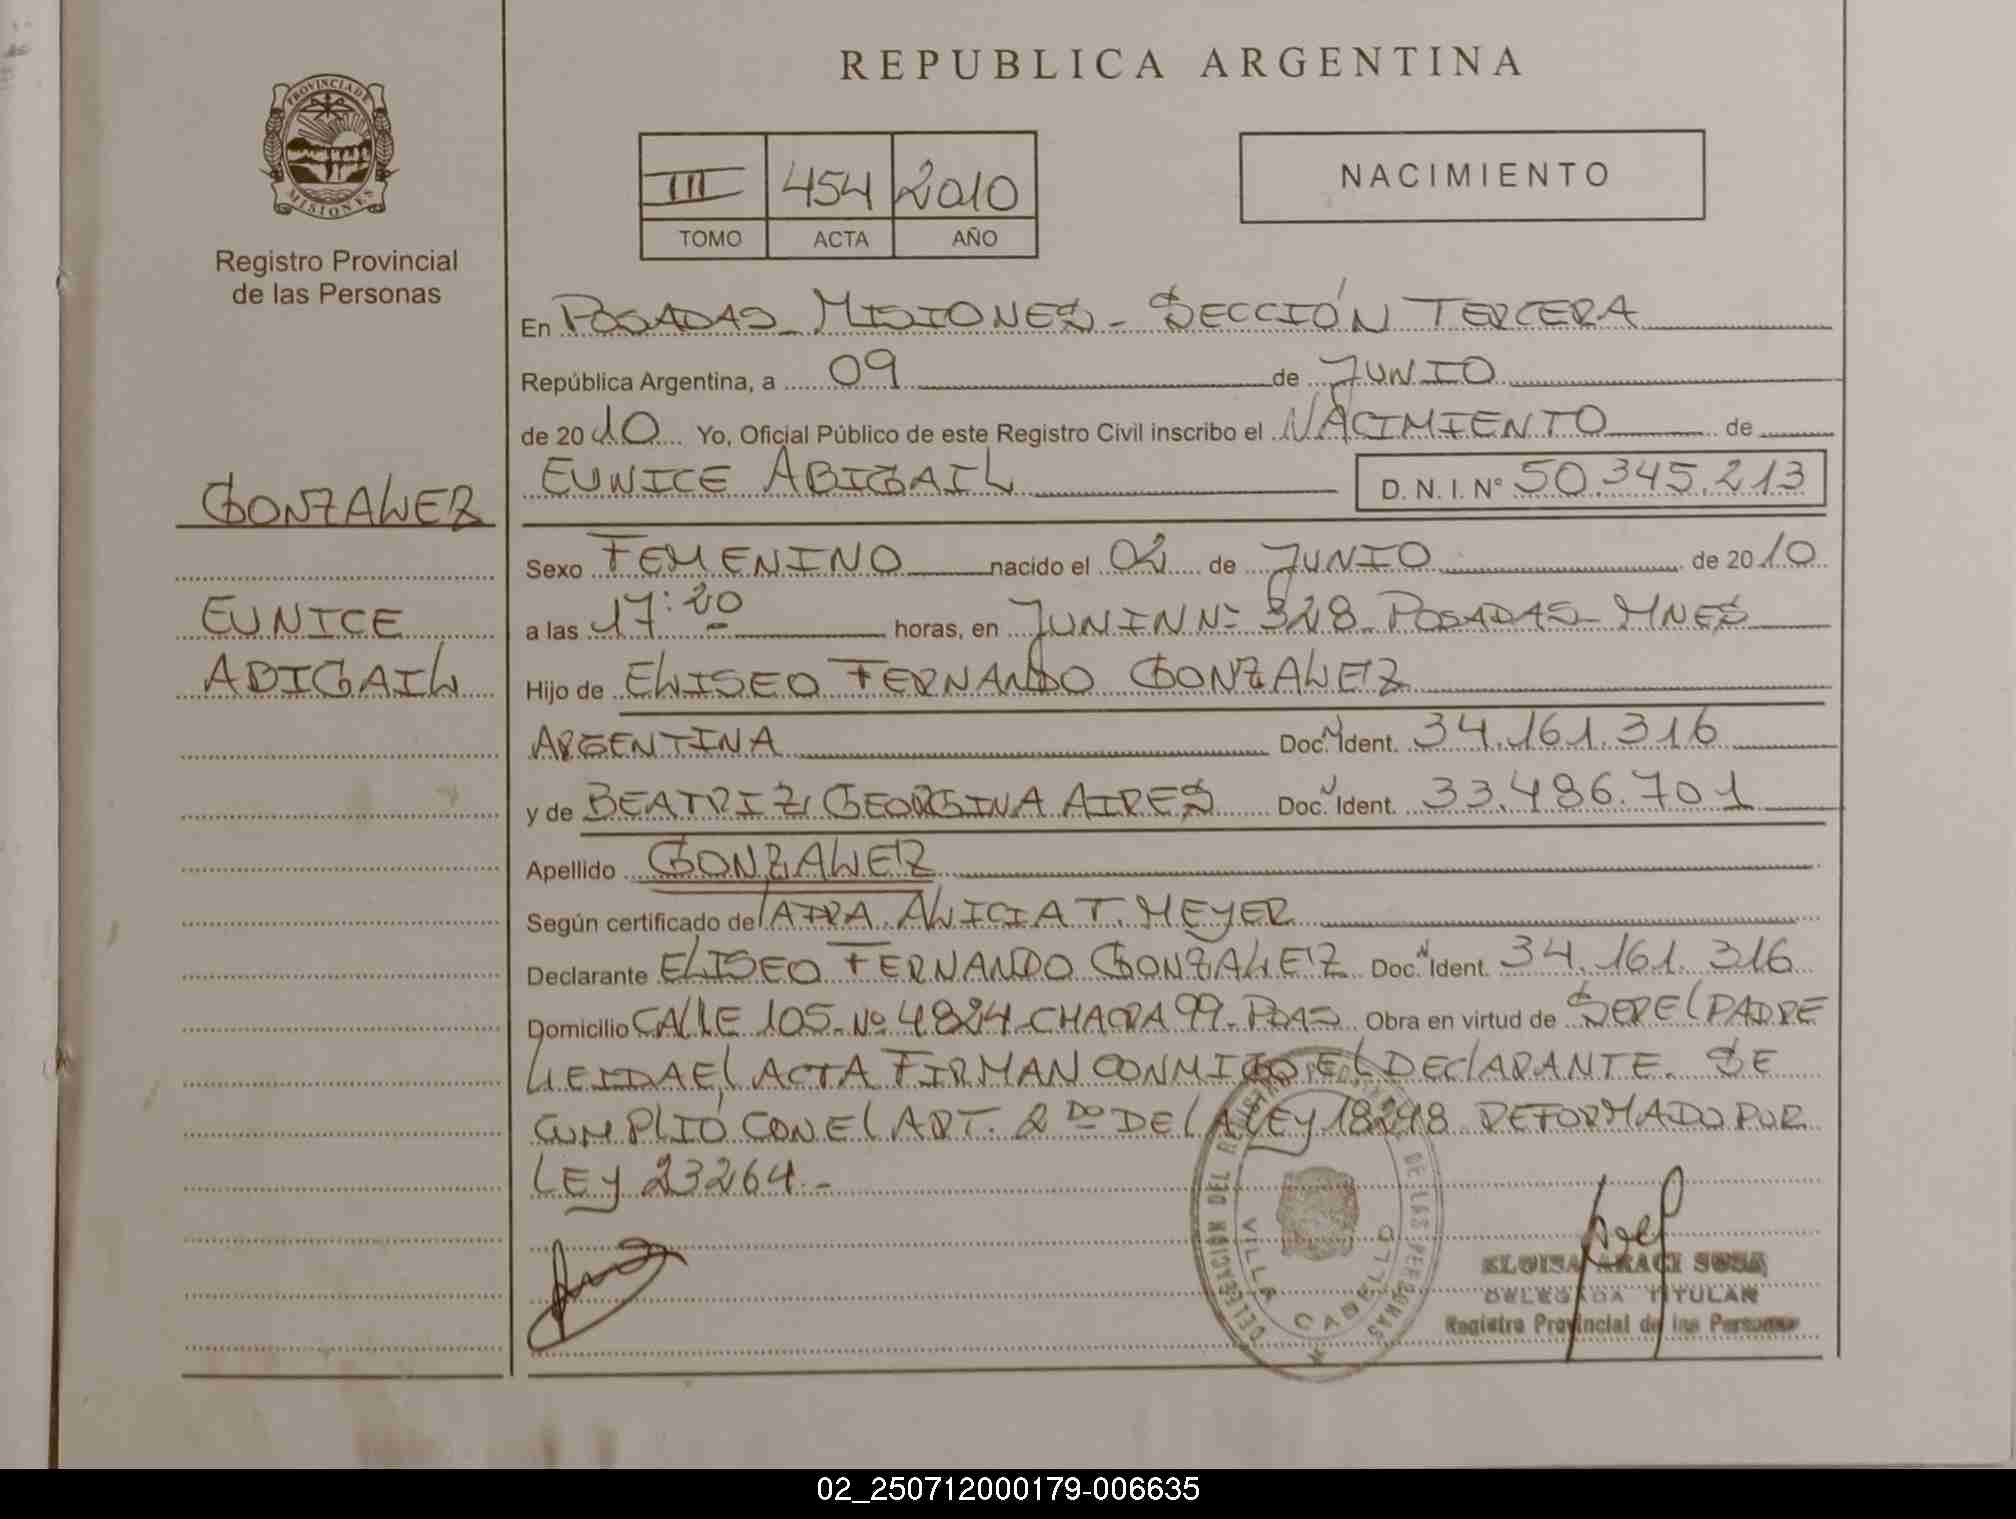 REPUBLICA ARGENTINA
PROVINCIA DE
MISIONES
Registro Provincial
de las Personas
III 454 2010
TOMO ACTA AÑO
NACIMIENTO
En POSADAS - MISIONES - SECCIÓN TERCERA
República Argentina, a 09 de JUNIO
de 2010 Yo, Oficial Público de este Registro Civil inscribo el NACIMIENTO de
EUNICE ABIGAIL D. N. I. N° 50.345.213
GONZALEZ
Sexo FEMENINO nacido el 02 de JUNIO de 2010
EUNICE
a las 17:20 horas, en JUNIN Nº 328 POSADAS - MNES
ABIGAIL
Hijo de ELISEO FERNANDO GONZALEZ
ARGENTINA Doc. N Ident. 34.161.316
y de BEATRIZ GEORGINA AIRES Doc. N Ident. 33.486.701
Apellido GONZALEZ
Según certificado de ALICIA T. MEYER
Declarante ELISEO FERNANDO GONZALEZ Doc. N Ident. 34.161.316
Domicilio CALLE 105 - Nº 4824 - CHACRA 99 - PDAS Obra en virtud de SER EL PADRE
LEIDA EL ACTA FIRMAN CONMIGO EL DECLARANTE. SE
CUMPLIÓ CON EL ART. 2DO DE LA LEY 18248 REFORMADO POR
LEY 23264.-
DELEGACIÓN DEL REGISTRO DE LAS PERSONAS
VILLA CABELLO
ELOISA ARACI SOSA
DELEGADA TITULAR
Registro Provincial de las Personas
02_250712000179-006635